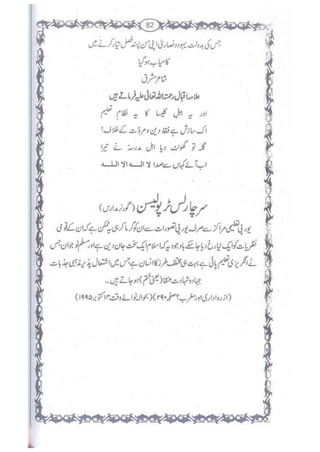 82
جس کی بدولت یہود و نصاریٰ اپنی من پسند فصل تیار کرنے میں
کامیاب ہو گیا
شاعر مشرق
علامہ اقبال رحمۃ اللہ تعالیٰ علیہ فرماتے ہیں
اور یہ اہل کلیسا کا یہ نظام تعلیم
اک سازش ہے فقط دین و مروت کے خلاف!
گلہ تو گھونٹ دیا اہل مدرسہ نے تیرا
اب آئے کہاں سے صدا لا الہ الا اللہ
سر چارلس ٹریولیسن (گورنر مدارس)
یورپی تعلیمی مراکز سے صرف یورپی تصورات سے ان کو گرما کر ہی یہ ممکن ہے کہ ان کے قومی
نظریات کو ایک نیا رخ دیا جا سکے باوجود یہ کہ اسلام ایک سخت جان دین ہے اور مسلم نوجوان جس
نے انگریزی تعلیم پائی ہے بہت ہی مختلف طرز کا انسان ہے جس میں اشتعال پذیر مذہبی جذبات
جہاد و شہادت عنقا (یعنی ختم) ہو جاتے ہیں۔
(از رواداری اور مغرب؟ صفحہ ۲۹۰) (بحوالہ نوائے وقت ۳ اکتوبر ۱۹۹۵)